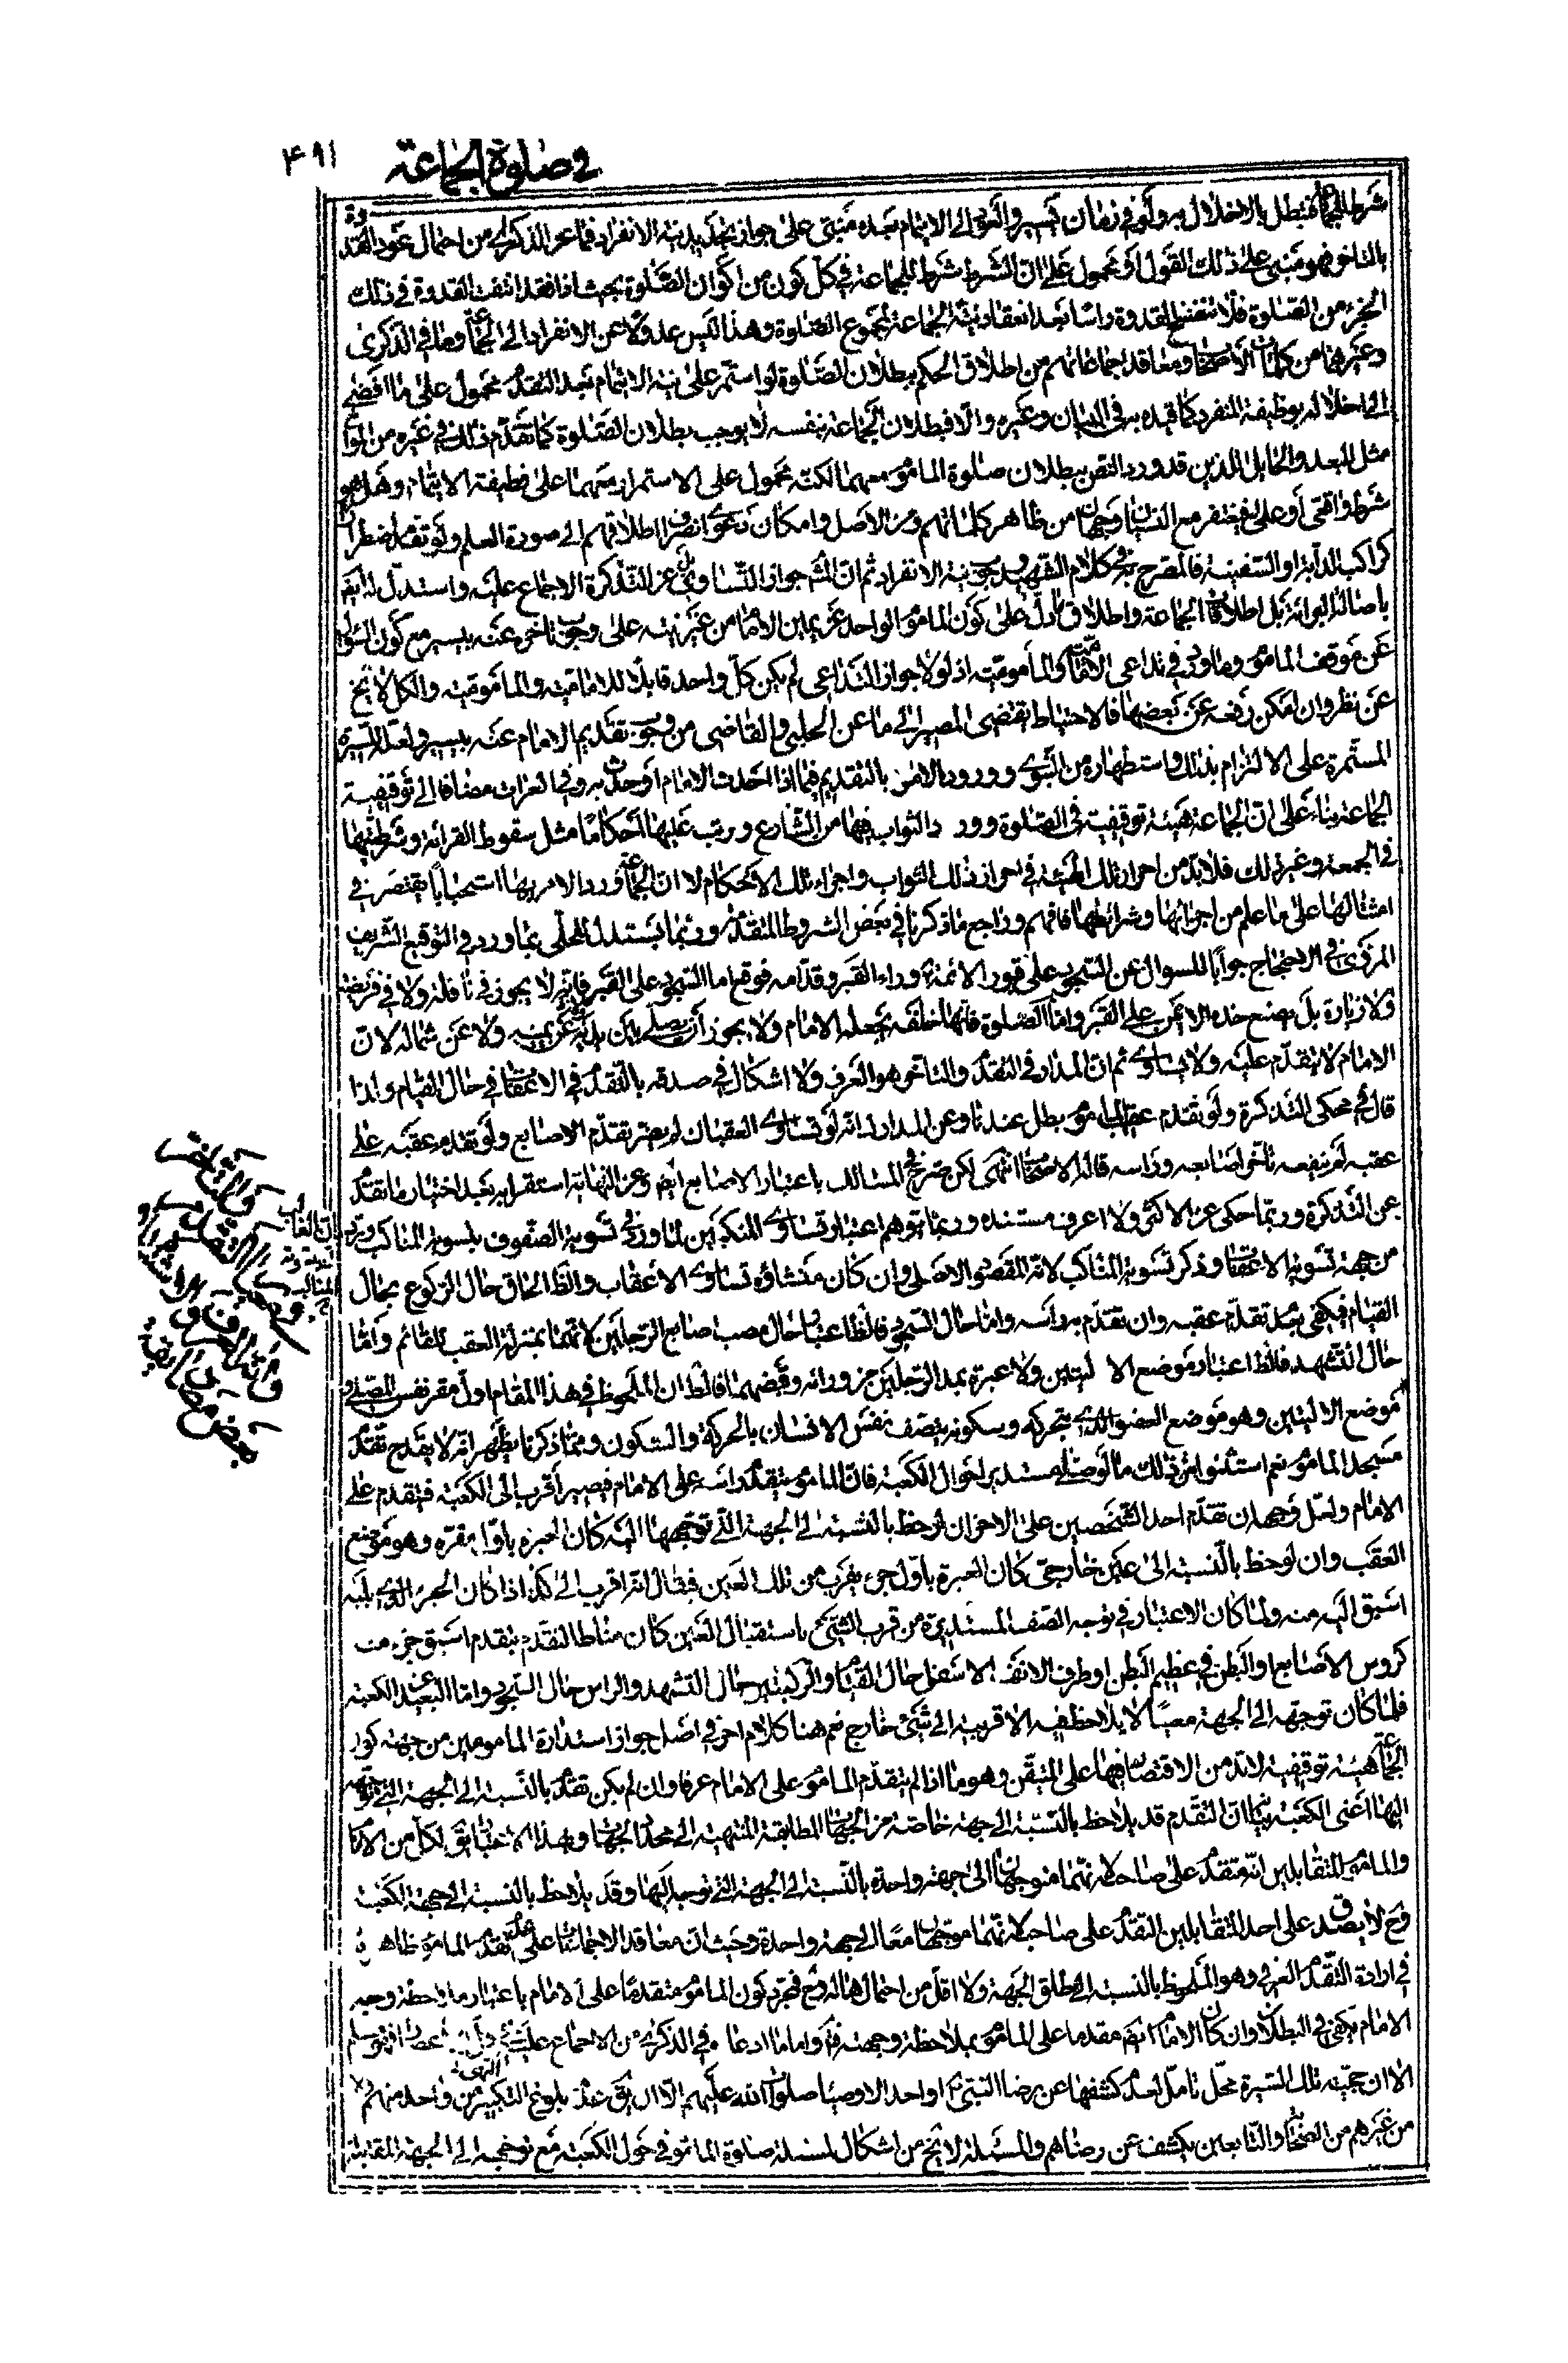 في صلوة الجماعة
٤٩١
شرط للجماعة فتبطل بالاخلال به ولو في زمان يسير والعود الى الايتمام بعده مبتنى على جواز تجديد نية الانفراد فما عن الذكرى من احتمال عود القدوة
بالتاخر فهو مبنى على ذلك القول او محمول على ان الشرط شرط للجماعة في كل كون من اكوان الصلوة بحيث اذا فقد انتفت القدوة في ذلك
الجزء من الصلوة فلا تنفسخ القدوة راسا بعد انعقاد نية الجماعة لمجموع الصلوة وهذا ليس عدولا عن الانفراد الى الجماعة وما في الذكرى
وغيرها من كلمات الاصحاب ومعاقد اجماعاتهم من اطلاق الحكم ببطلان الصلوة لو استمر على نية الايتمام بعد التقدم محمول على ما افضى
الى اخلاله بوظيفة المنفرد كما قيده به في البيان وغيره والا فبطلان الجماعة بنفسه لا يوجب بطلان الصلوة كما تقدم ذلك في غيره من الموانع
مثل البعد والحايل الذين قد ورد النص ببطلان صلوة الماموم معهما لكنه محمول على الاستمرار معهما على وظيفة الايتمام وهل هو
شرط واقعى او علمى فيغتفر مع النسيان وجهان من ظاهر كلماتهم ومن الاصل وامكان دعوى انصراف اطلاقهم الى صورة العلم ولو تقدم اضطرارا
كراكب الدابة او السفينة فالمصرح به في كلام الشهيد وجوب نية الانفراد ثم ان المشهور جواز التساوى بل عن التذكرة الاجماع عليه واستدل له ايضا
باصالة البرائة بل اطلاقات الجماعة واطلاق ما دل على كون الماموم الواحد عن يمين الامام من غير تنبيه على وجوب تاخره عنه بيسير مع كون السؤال
عن موقف الماموم وما ورد في تداعى الامامة والمأمومية اذ لو لا جواز التداعى لم يكن كل واحد قابلا للامامية والمأمومية والكل لا يخ
عن نظر وان امكن رفعه عن بعضها فالاحتياط يقتضى المصير الى ما عن الحلى والقاضى من وجوب تقديم الامام عنه بيسير ولعله للسيرة
المستمرة على الالتزام بذلك واستظهاره من النبوى وورود الامر بالتقديم فيما اذا احدث الامام او حدث به وفي العراة مضافا الى توقيفية
الجماعة بناء على ان الجماعة هيئة توقيفية في الصلوة وورد الثواب فيها من الشارع ورتب عليها احكاما مثل سقوط القرائة وشرطيتها
في الجمعة وغير ذلك فلا بد من احراز تلك الهيئة في احراز ذلك الثواب واجراء تلك الاحكام لا ان الجماعة ورد الامر بها استحبابا يقتصر في
امتثالها على ما علم من اجزائها وشرائطها فافهم وراجع ما ذكرنا في بعض الشروط المتقدمة وربما يستدل للحلى بما ورد في التوقيع الشريف
المروى في الاحتجاج جوابا للسوال عن السجود على قبور الائمة وراء القبر وقدامه فوقع اما السجود على القبر فانه لا يجوز في نافلة ولا في فريضة
ولا زيارة بل يضع خده الايمن على القبر واما الصلوة فانها خلفه يجعله الامام ولا يجوز ان يصلى بين يديه ولا عن يمينه ولا عن شماله لان
الامام لا يتقدم عليه ولا يساوى ثم ان المدار في التقدم والتاخر هو العرف ولا اشكال في صدقه بالتقدم في الاعقاب في حال القيام ولذا
قال في محكى التذكرة ولو تقدم عقب الماموم بطل عندنا وعن المدارك انه لو تساوى العقبان لم يضر تقدم الاصابع ولو تقدم عقبه على
عقبه لم ينفعه تاخر اصابعه وراسه قاله الاصحاب انتهى لكن صرح في المسالك باعتبار الاصابع ايضا وعن النهاية استقرابه بعد اختيار ما تقدم
عن التذكرة وربما حكى عن الاكثر ولا اعرف مستنده وربما توهم اعتبار تساوى المنكبين لما ورد في تسوية الصفوف بتسوية المناكب
من جهة تسوية الاعقاب وذكر تسوية المناكب لانه المقصود الاصلى وان كان منشاؤه تساوى الاعقاب والظ الحاق حال الركوع بحال
القيام فيكفى بعد تقدم عقبه وان تقدم براسه واما حال السجود فالظ اعتبار حال مصب اصابع الرجلين لانهما بمنزلة العقب للقائم واما
حال التشهد فالظ اعتبار موضع الاليتين ولا عبرة بمد الرجلين من ورائه وقبضهما فالظ ان الملحوظ في هذا المقام اول مقر نفس المصلى و
موضع الاليتين وهو موضع العضو الذى بتحركه وسكونه يتصف نفس الانسان بالحركة والسكون ومما ذكرنا يظهر انه لا يقدح تقدم
مسجد الماموم نعم استثنوا من ذلك ما لو صلى مستديرا حول الكعبة فان الماموم يتقدم راسه على الامام فيصير اقرب الى الكعبة فيتقدم على
الامام ولعل وجهه ان تقدم احد الشخصين على الاخر ان لوحظ بالنسبة الى الجهة التى توجها اليه كان العبرة باول مقره وهو موضع
العقب وان لوحظ بالنسبة الى عين خارجى كان العبرة باول جزء يقرب من تلك العين فيقال انه اقرب الى كذا اذا كان الجزء الذى يليه
اسبق اليه منه ولما كان الاعتبار في توجه الصف المستديرة من قرب الشئ باستقبال العين كان مناط التقدم بتقدم اسبق جزء منه
كرؤس الاصابع او البطن في عظيم البطن او طرف الانف الاسفل حال القيام والركبتين حال التشهد والراس حال السجود واما البعيد عن الكعبة
فلما كان توجهه الى الجهة معينا لا يلاحظ فيه الاقربية الى شئ خارج نعم هنا كلام اخر في اصل جواز استدارة المامومين من جهة كون
الجماعة هيئة توقيفية لابد من الاقتصار فيها على المتيقن وهو ما اذا لم يتقدم الماموم على الامام عرفا وان لم يكن تقدم بالنسبة الى الجهة التى توجه
اليها اعنى الكعبة بيانه ان التقدم قد يلاحظ بالنسبة الى جهة خاصة من الجهات المطابقة المنتهية الى محدد الجهات وبهذا الاعتبار يق لكل من الامام
والماموم المتقابلين انه متقدم على صاحبه لانهما متوجهان الى جهة واحدة بالنسبة الى الجهة التى توجه اليها وقد يلاحظ بالنسبة الى جهة الكعبة
فح لا يصدق على احد المتقابلين التقدم على صاحبه لانهما موجهان معا الى جهة واحدة وحيث ان معاقد الاجماعات على عدم تقدم الماموم ظاهرة
في ارادة التقدم العرفى وهو الملحوظ بالنسبة الى مطلق الجهة ولا اقل من احتمالها له فمجرد كون الماموم متقدما على الامام باعتبار ملاحظة وجهه
الامام يكفى في البطلان وان كان الامام ايضا مقدما على الماموم بملاحظة وجهته واما ما ادعاه في الذكرى من الاجماع عليه
الا ان حجية تلك السيرة محل تامل لعدم كشفها عن رضا النبى او احد الاوصياء صلوات الله عليهم الا ان يق عدم بلوغ النكير من واحد منهم
من غيرهم من الصحابة والتابعين يكشف عن رضاهم والمسئلة لا يخ من اشكال لمسئلة صلوة الماموم في حول الكعبة مع توجهه الى الجهة المقابلة